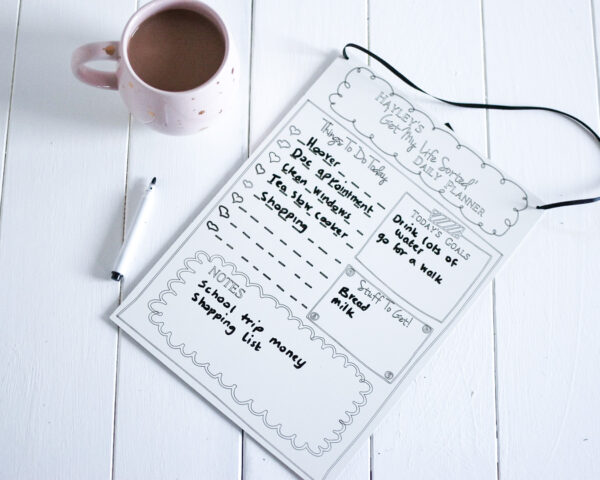 HAYLEY'S
'Get My Life Sorted'
DAILY PLANNER
Things To Do Today
Hoover
Doc appointment
Clean windows
Tea slow cooker
Shopping
TODAY'S GOALS
Drink lots of
water
go for a walk
Stuff To Get!
Bread
milk
NOTES
School trip money
Shopping list